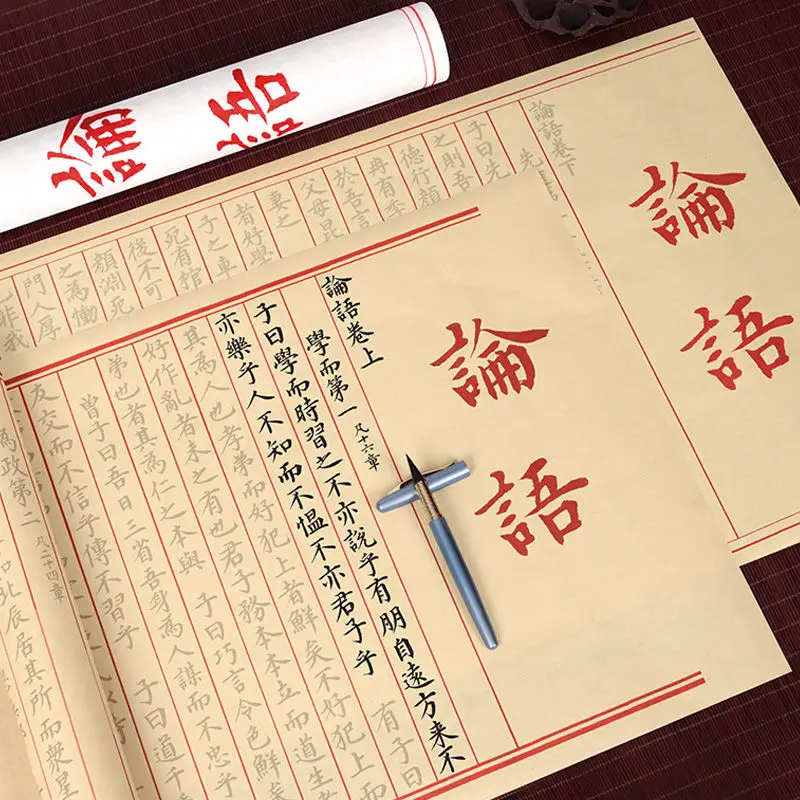 論語
論語
論語卷下
先
子曰先
之則吾
德行顏
冉有季
於吾言
父母昆
妻之
者好學
子之車
死有棺
後不可
顏淵死
之為慟
門人厚
也非我
論語
論語卷上
學而第一 凡十六章
子曰學而時習之不亦說乎有朋自遠方來不
亦樂乎人不知而不慍不亦君子乎 有子曰
其為人也孝弟而好犯上者鮮矣不好犯上
好作亂者未之有也君子務本本立而道生
弟也者其為仁之本與 子曰巧言令色鮮
曾子曰吾日三省吾身為人謀而不忠乎
友交而不信乎傳不習乎 子曰道千
為政第二 凡二十四章
北辰居其所而眾星